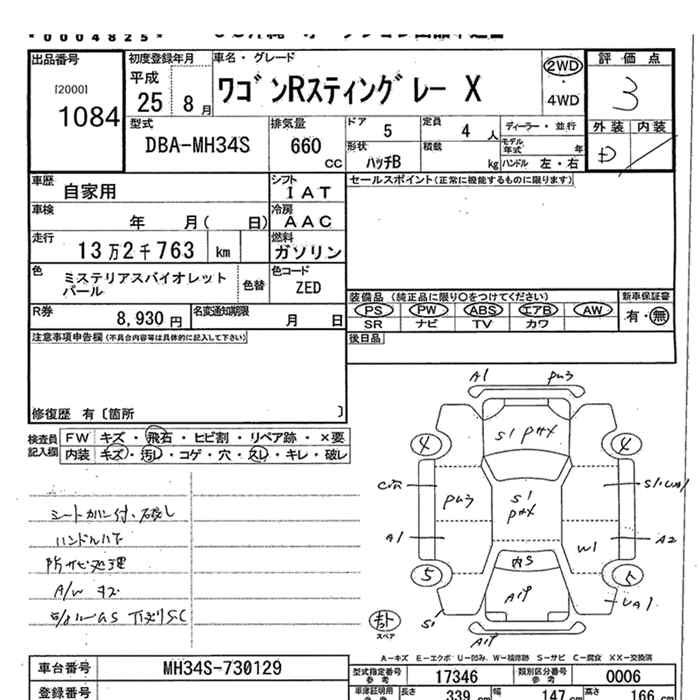 *0004825*
出品番号 初度登録年月 車名・グレード 評価点
[2000]
1084
平成
25 8月
ワゴンRスティングレー X
2WD
・
4WD
3
外装 内装
D
型式
DBA-MH34S
排気量
660
cc
ドア 5
定員 4 人
ディーラー・並行
形状
ハッチB
積載
kg
モデル年式
年
ハンドル 左・右
車歴 自家用
シフト
IAT
セールスポイント(正常に機能するものに限ります)
車検
年 月( 日)
冷房
AAC
走行
13万2千763 km
燃料
ガソリン
色
ミステリアスバイオレット
パール
色替
色コード
ZED
R券
8,930円
名変通知期限
月 日
装備品 (純正品に限り○をつけてください)
PS PW ABS エアB AW
SR ナビ TV カワ
新車保証書
有・無
後日品
注意事項申告欄(不具合内容等は具体的に記入して下さい)
修復歴 有〔箇所 〕
検査員
記入欄
FW キズ・飛石・ヒビ割・リペア跡・×要
内装 キズ・汚レ・コゲ・穴・スレ・キレ・破レ
ハンドルハゲ
防サビ処理
A/W キズ
A1
4
4
A1
A2
W1
5
5
S1
UA1
スペア
A-キズ E-エクボ U-凹み W-補修跡 S-サビ C-腐食 XX-交換済
車台番号 MH34S-730129
型式指定番号
参考
17346
類別区分番号
参考
0006
登録番号
車庫証明用
長さ 339 cm 幅 147 cm 高さ 166 cm